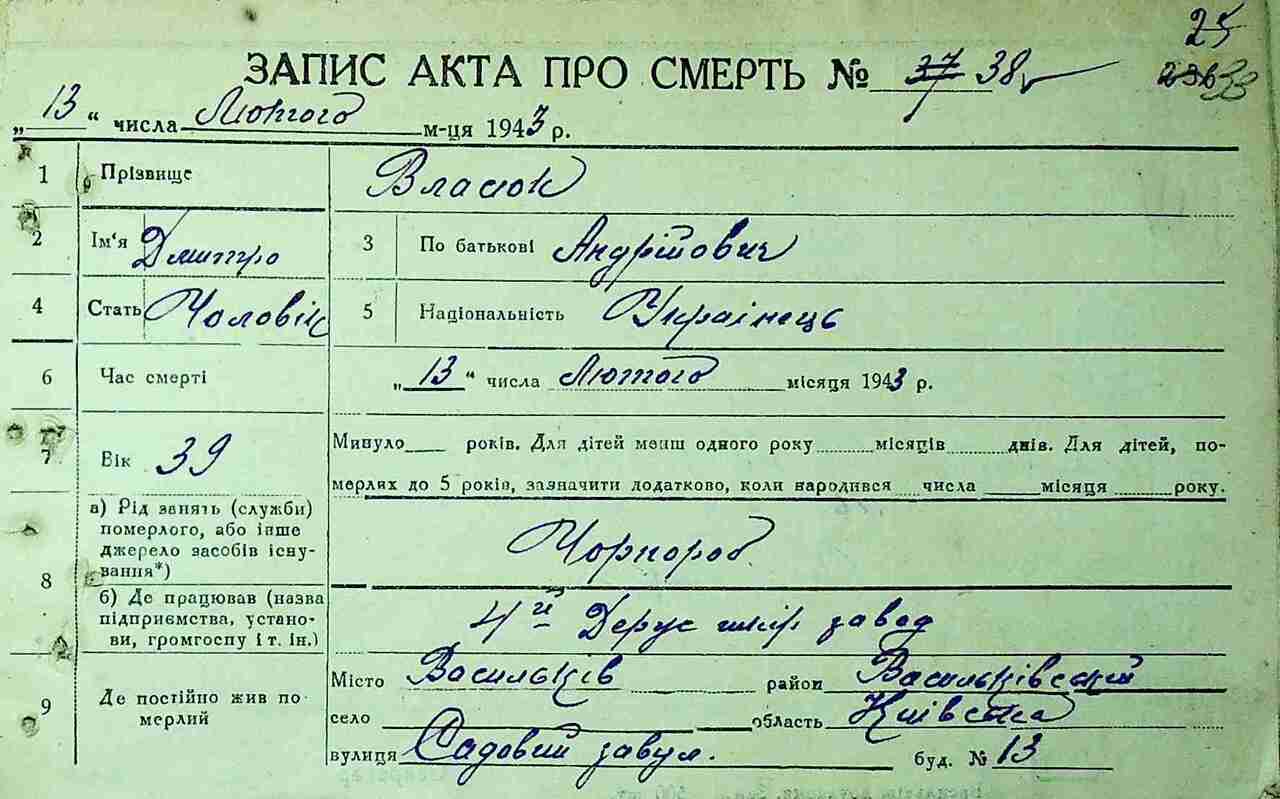 25
ЗАПИС АКТА ПРО СМЕРТЬ № 37 38
236 33
„13“ числа Лютого м-ця 1943 р.
1 Прізвище Власюк
2 Ім'я Дмитро 3 По батькові Андрійович
4 Стать Чоловік 5 Національність Украінець
6 Час смерті „13“ числа Лютого місяця 1943 р.
7 Вік 39 Минуло____ років. Для дітей менш одного року........місяців......днів. Для дітей, по-
мерлих до 5 років, зазначити додатково, коли народився ....числа ____місяця ........року.
8 а) Рід занять (служби) померлого, або інше джерело засобів існування*) Чорнороб
б) Де працював (назва підприємства, установи, громгоспу і т. ін.) 4й шкір завод
9 Де постійно жив померлий
Місто Васильків район Васильківський
село область Київська
вулиця Садовий завул. буд. № 13